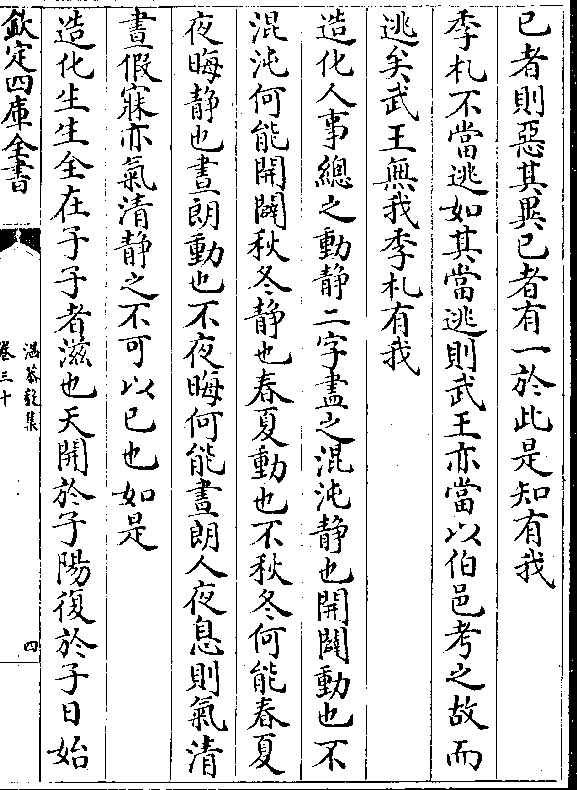 已者則惡其異已者有一於此是知有我
季札不當逃如其當逃則武王亦當以伯邑考之故而
逃矣武王無我季札有我
造化人事總之動静二字盡之混沌静也開闢動也不
混沌何能開闢秋冬静也春夏動也不秋冬何能春夏
夜晦静也晝朗動也不夜晦何能晝朗人夜息則氣清
晝假寐亦氣清静之不可以已也如是
造化生生全在子子者滋也天開於子陽復於子日始
欽定四庫全書
涇皋藏集
卷三十
四